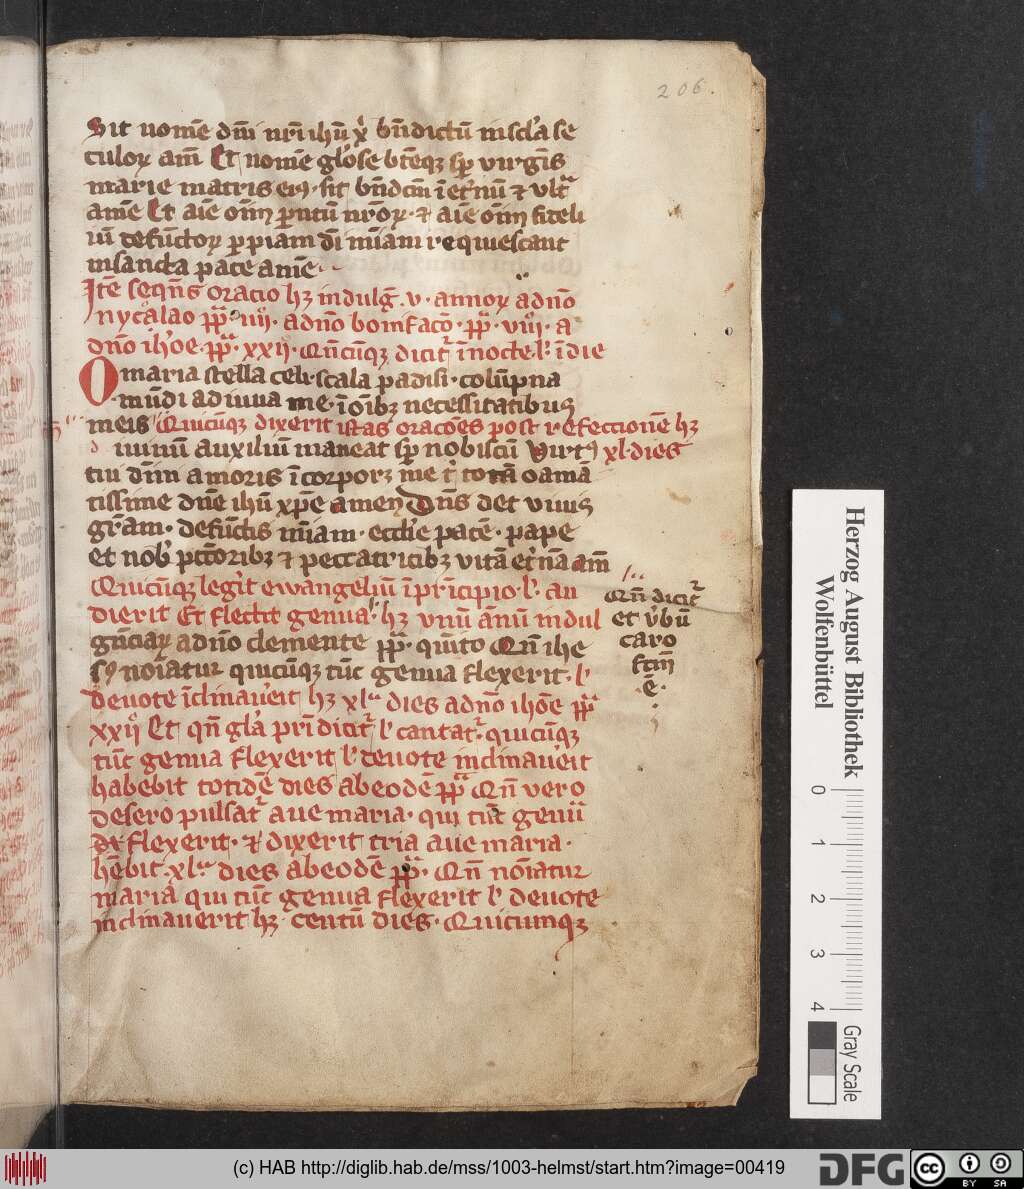 206.
Sit nomē dn̄i nr̄i ihū xͥ bn̄dictū inscl̓a se
culoꝝ am̄ Et nomē gl̓ose bt̄eqꝫ sꝑ virgīs
marie matris eiꝰ· sit bn̄dcm̄ ī et̓nū ⁊ vlt̄ᵃ
amē Et aīe om̄ꝫ ꝑntū nr̄oꝝ· ⁊ aīe om̄ꝫ fideli
ū defūctoꝝ ꝑ piam dī mīam requiescant
insancta pace amē
Itē seqn̄s oracio hꝫ indulḡ· v· annoꝝ a dn̄o
nycͦalao pp̄ᵃ iiiͦj· a dn̄o bonifacō· pp̄ᵃ· viiiͦj· a
dn̄o ihͦoē· pp̄ᵃ· xxijͦ· Qn̄cūqꝫ dicitᷣ ī nocte· l̓· ī die
O maria stella celi· scala padisi· colūpna
mūdi adiuua me· ī oībꝫ necessitatibus
meis Quicūqꝫ dixerit istas oracōes post refeccionē hꝫ
d iuinū auxiliū maneat sꝑ nobiscū Virtꝰ xl· dies
tui dīni amoris ī corporꝫ me t̓ totā o amā
tissime dn̄e ihū xp̄e amen Dn̄s det viuis
gr̄am· defūctis mīam· ecclīe pacē· pape
et nob̓ pctōribꝫ ⁊ peccatricibꝫ vitā et̓nā am̄
Quicūqꝫ legīt ewangeliū ī prīcipio· l̓· au
dierit Et flectit genua· l̓· hꝫ vnū ānū indul
gn̄ciaꝝ a dn̄o clemente pp̄ᵃ· quīto Qn̄ ihe
sꝰ noīatur quicūqꝫ tūc genua flexerit· l̓
deuote īclinau̓eit hꝫ xlᵃ dies a dn̄o ihͦoē pp̄ᵃ
xxijͦ Et qn̄ glᵃ prī dicitᷣ l̓ cantatᷣ· quicūqꝫ
tūc genua flexerit l̓ deuote inclinau̓eit
habebit totidē dies ab eodē pp̄ᵃ Qn̄ vero
de sero pulsatᷣ aue maria· qui tūc genua
flexerit· ⁊ dixerit tria aue maria·
hēbit· xlᵃ dies ab eodē pp̄ᵃ· Qn̄ noīatur
maria qui tūc genua flexerit l̓ deuote
inclinauerit hꝫ· centū dies· Quicumqꝫ
Qn̄ dicitᷣ
et v̓bū
caro
fctm̄
ē·
Herzog August Bibliothek
Wolfenbüttel
0 1 2 3 4
Gray Scale
(c) HAB http://diglib.hab.de/mss/1003-helmst/start.htm?image=00419
DFG
cc BY SA